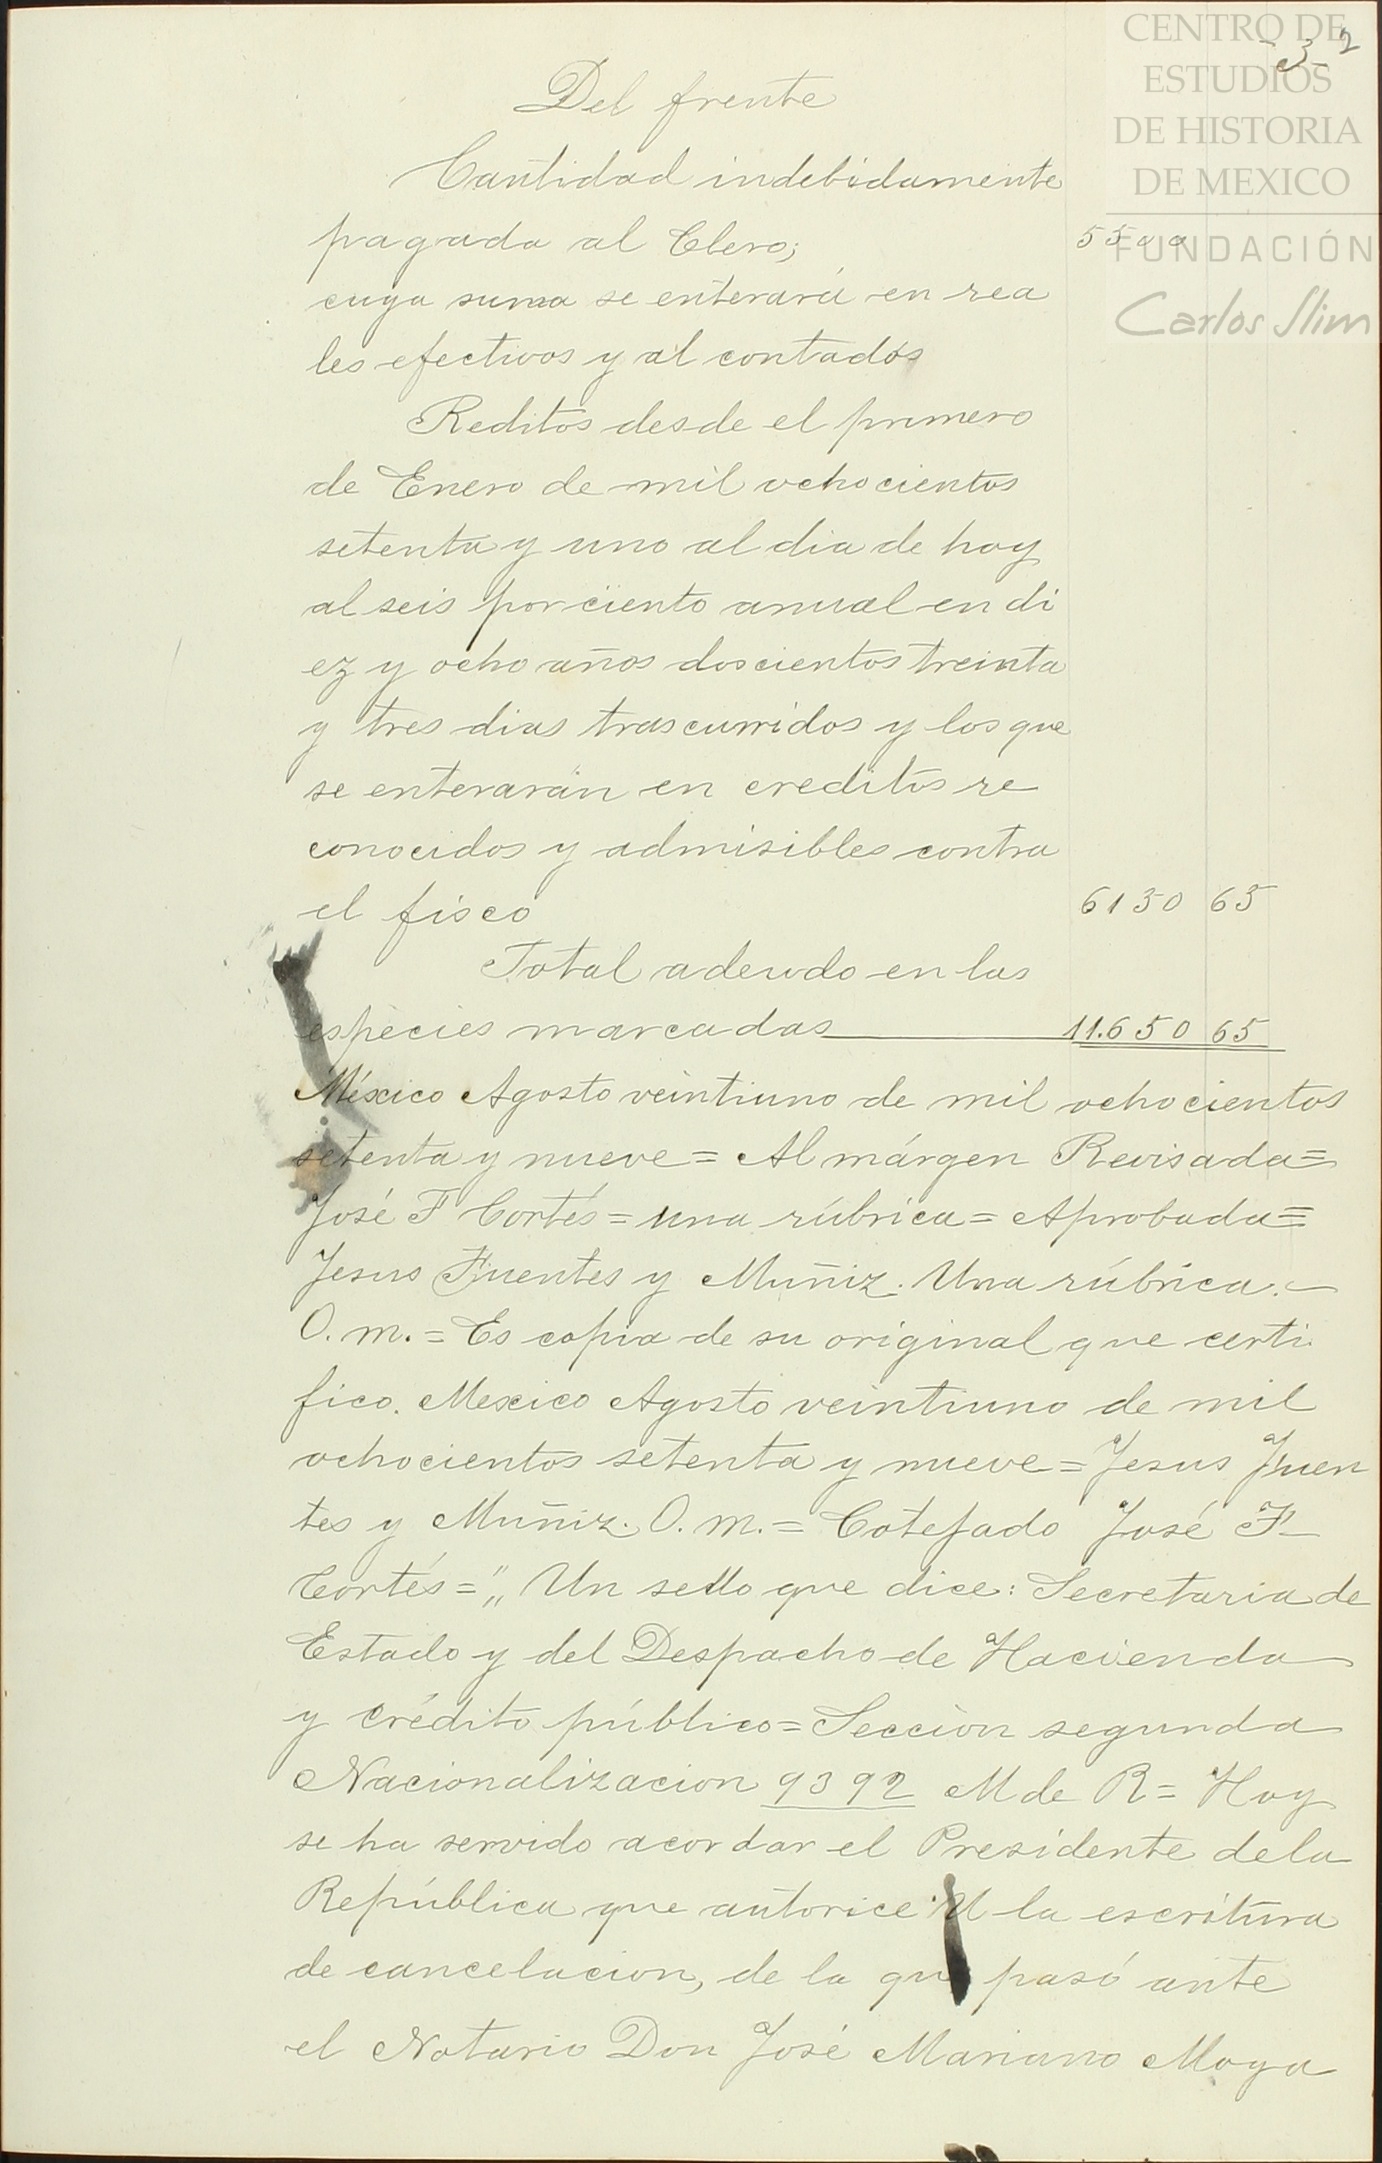 CENTRO DE
ESTUDIOS
DE HISTORIA
DE MEXICO
FUNDACIÓN
Carlos Slim
Del frente
Cantidad indebidamente
pagada al Clero; 5500
cuya suma se enterará en rea
les efectivos y al contados
Reditos desde el primero
de Enero de mil ochocientos
setenta y uno al dia de hoy
al seis por ciento anual en di
ez y ocho años doscientos treinta
y tres dias trascurridos y los que
se enterarán en creditos re
conocidos y admisibles contra
el fisco 6150 65
Total adeudo en las
especies marcadas 11.650 65
México Agosto veintiuno de mil ochocientos
setenta y nueve = Al márgen Revisada =
José F Cortés = una rúbrica = Aprobada =
Jesus Fuentes y Muñiz. Una rúbrica. -
O. m. = Es copia de su original que certi
fico. Mexico Agosto veintiuno de mil
ochocientos setenta y nueve = Jesus Fuen
tes y Muñiz. O. m. = Cotejado José F
Cortés = " Un sello que dice: Secretaria de
Estado y del Despacho de Hacienda
y crédito público = Sección segunda
Nacionalizacion 9392 M de R = Hoy
se ha servido acordar el Presidente de la
República que autorice U la escritura
de cancelacion, de la que pasó ante
el Notario Don José Mariano Moya